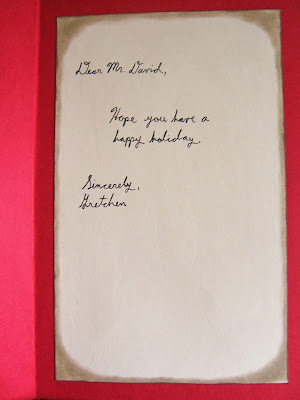 Dear Mr. David,
Hope you have a
happy holiday.
Sincerely,
Gretchen